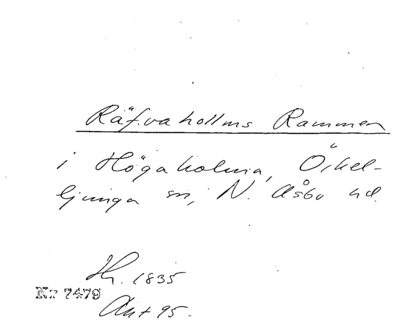 Räfvahollms Rammen
i Högaholma, Örkel-
ljunga sn, N. Åsbo hd.
Hr. 1835
Kr 7479
Ant 95.